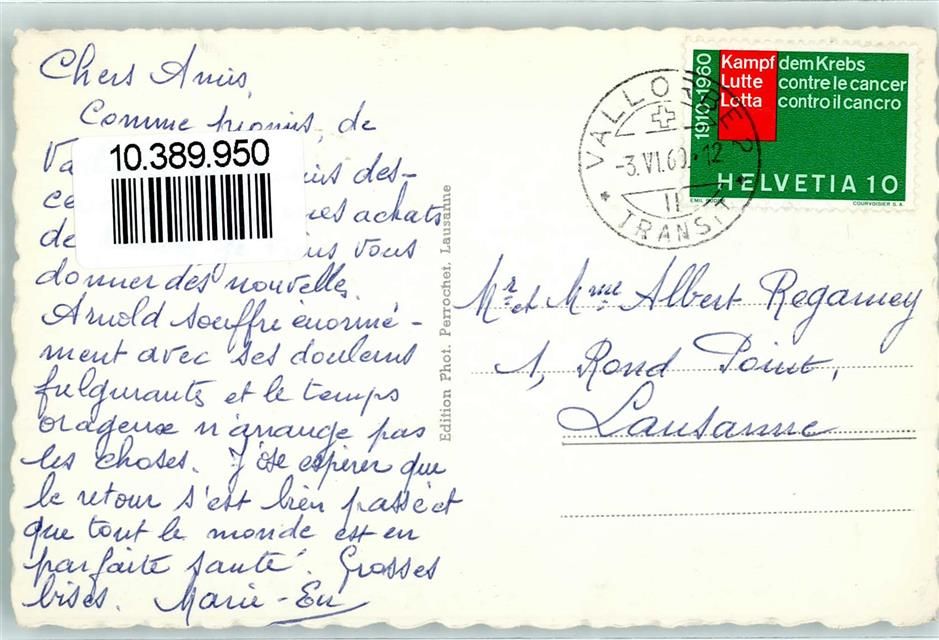 Chers Amis,
Comme promis, de
Va
10.389.950
des-
ce
achats
de
vous
donner des nouvelles.
Arnold souffre énormé-
ment avec ses douleurs
fulgurantes et le temps
orageux n'arrange pas
les choses. J'ose espérer que
le retour s'est bien passé et
que tout le monde est en
parfaite santé. Grosses
bises. Marie-
Edition Phot. Perrochet, Lausanne
VALLORBE 2
-3.VI.60.-12
II
TRANSIT
1910-1960
Kampf dem Krebs
Lutte contre le cancer
Lotta contro il cancro
HELVETIA 10
COURVOISIER S.A.
Mr et Mme Albert Regamey
1, Rond Point,
Lausanne